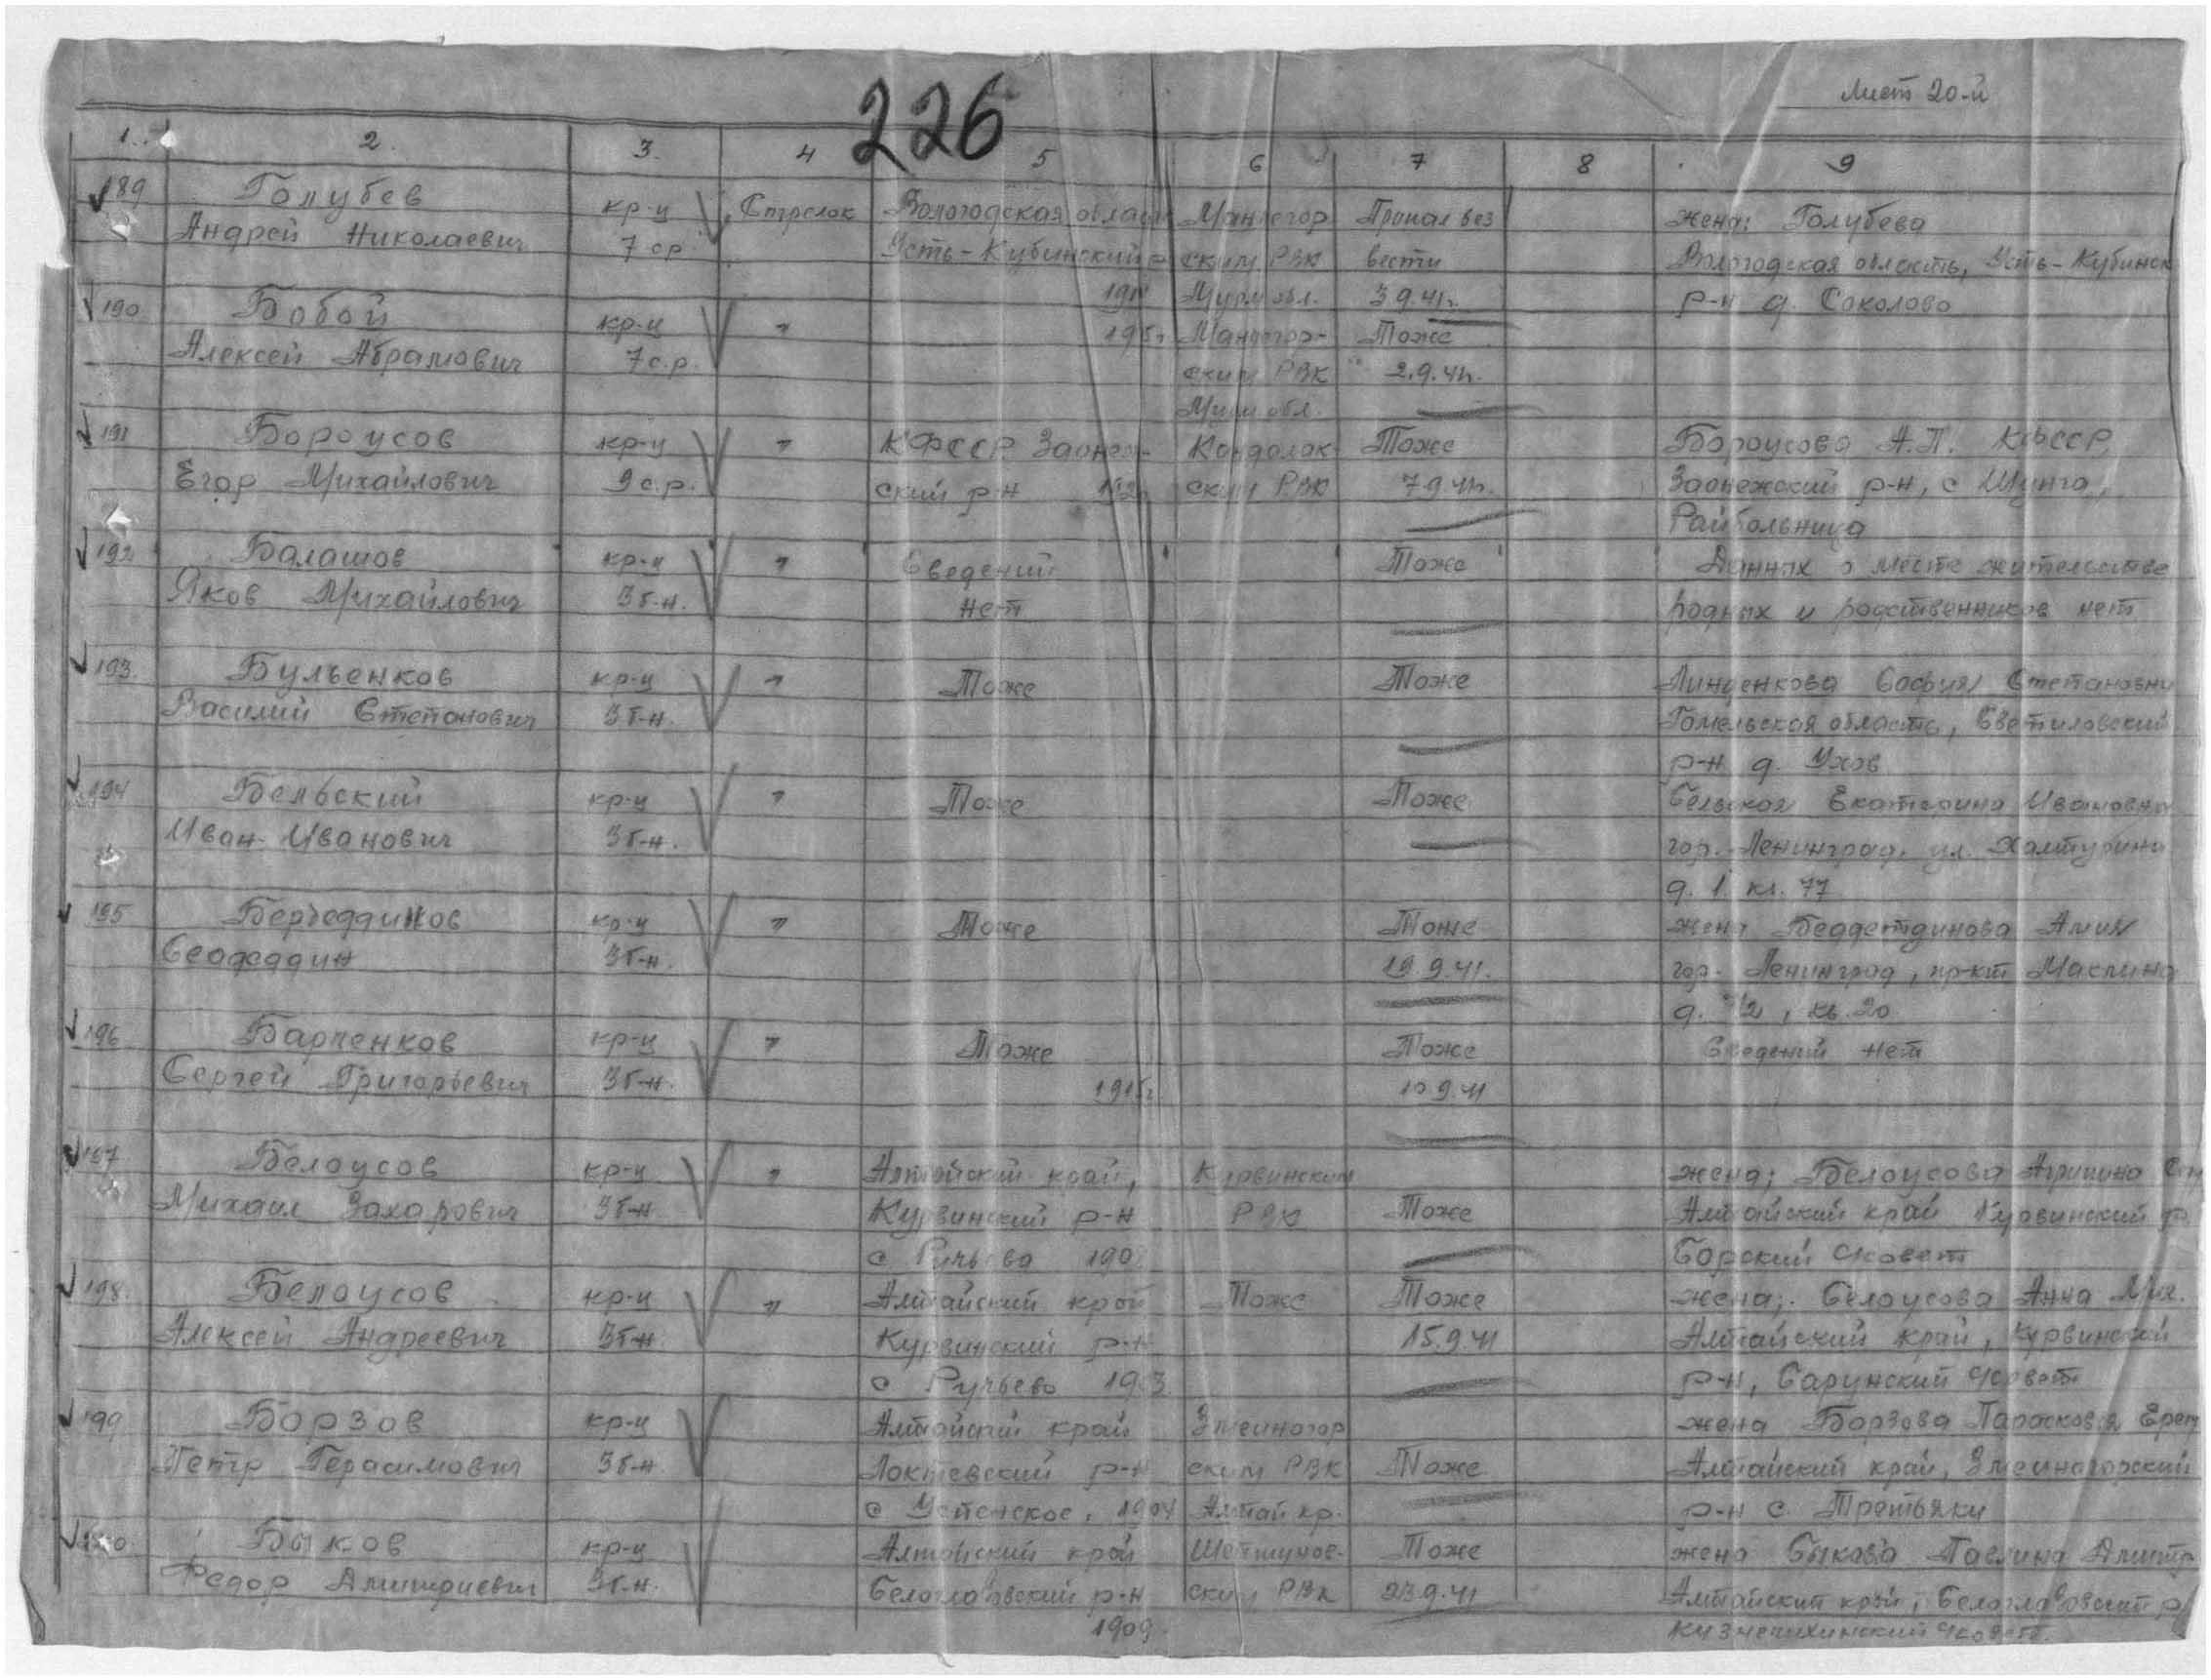 Лист 20-й
226
1. 2. 3. 4 5 6 7 8 9
189 Голубев кр-ц Стрелок Вологодская област Пропал без жена: Голубева
Андрей Николаевич 7 ср Усть-Кубинский ским РВК вести Вологодская область, Усть-Кубинск
Мурм обл. 3 9.41г. р-н д. Соколово
190 Бобой кр-ц " Тоже
Алексей Абрамович 7 с.р. ским РВК 2.9.41г.
Мурм обл.
191 Бороусов кр-ц " КФССР Заонеж- Кандалак Тоже Бороусова А.П. КФССР,
Егор Михайлович 9 с.р. ский р-н ским РВК 7.9.41г. Заонежский р-н, с Шунга,
Райбольница
192 Балашов кр-ц " Сведений Тоже Данных о месте жительстве
Яков Михайлович 3 б-н. нет родных и родственников нет
193 Бульенков кр-ц " Тоже Тоже София Степановна
Василий Степанович 3 б-н. Гомельская область, Светиловский
р-н д. Ухов
194 Бельский кр-ц " Тоже Тоже Бельская Екатерина Ивановна
Иван Иванович 3 б-н. гор. Ленинград, ул. Халтурина
д. 1 кв. 77
195 кр-ц " Тоже Тоже жена Амия
3 б-н. 19.9.41. гор. Ленинград, пр-кт Маклина
д. кв. 20
196 Барченков кр-ц " Тоже Тоже Сведений нет
Сергей Григорьевич 3 б-н. 10.9.41
197 Белоусов кр-ц " Алтайский край, Курвинским жена; Белоусова
Михаил Захарович 3 б-н Курвинский р-н РВК Тоже Алтайский край Курвинский р
с Ручьево Борский с/совет
198 Белоусов кр-ц " Алтайский край Тоже Тоже жена; Белоусова Анна Мих.
Алексей Андреевич 3 б-н Курвинский р-н 15.9.41 Алтайский край, Курвинский
с Ручьево р-н, с/совет
199 Борзов кр-ц Алтайский край Змеиногор жена Борзова Парасковья
Петр Герасимович 3 б-н Локтевский р-н ским РВК Тоже Алтайский край, Змеиногорский
с Успенское, 1904 Алтай кр. р-н с. Третьяки
200 Быков кр-ц Алтайский край Тоже жена Быкова
Федор Дмитриевич 3 б-н. Белоглазовский р-н ским РВК 23.9.41 Алтайский край, Белоглазовский р
1909